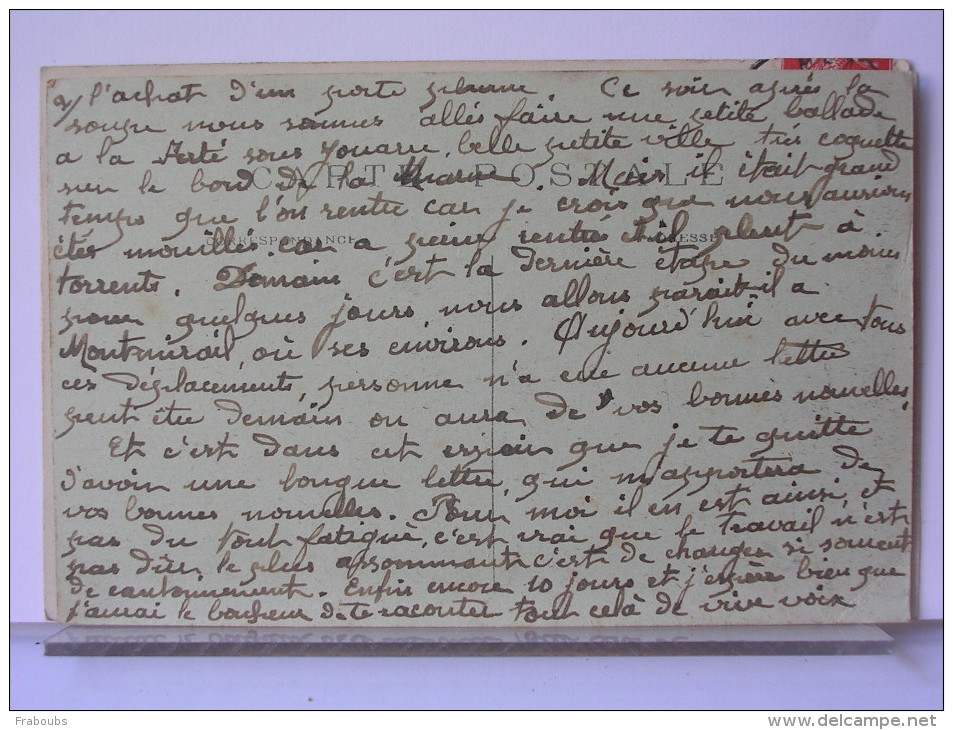 2/ l'achat d'un porte plume. Ce soir après la
soupe nous sommes allés faire une petite ballade
a la Ferté sous Jouarre, belle petite ville très coquette
sur le bord de la Marne. Mais il était grand
CARTE POSTALE
temps que l'on rentre car je crois que nous aurions
étés mouillés car a peine rentré il pleut à
CORRESPONDANCE ADRESSE
torrents. Demain c'est la dernière étape du moins
pour quelques jours, nous allons parait-il a
Montmirail, où ses environs. Aujourd'hui avec tous
ces déplacements, personne n'a eue aucune lettre
peut être demain on aura de vos bonnes nouvelles.
Et c'est dans cet espoir que je te quitte
d'avoir une longue lettre, qui m'apportera de
vos bonnes nouvelles. Pour moi il en est ainsi, et
pas du tout fatigué, c'est vrai que le travail n'est
pas dur, le plus assommant c'est de changer si souvent
de cantonnement. Enfin encore 10 jours et j'espère bien que
j'aurai le bonheur de te raconter tout celà de vive voix
Fraboubs
www.delcampe.net